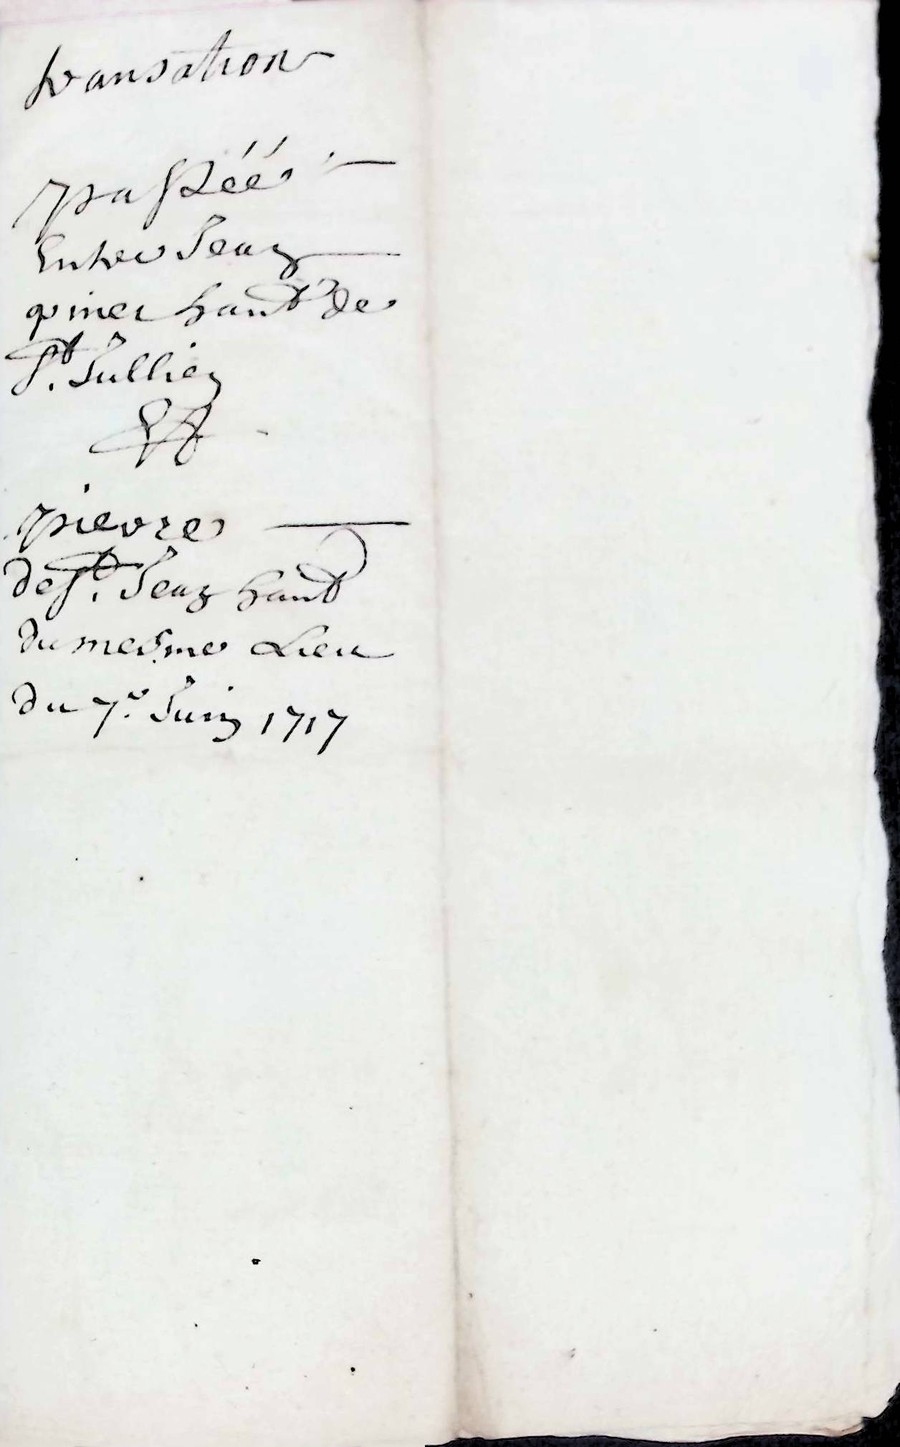 transation
passéé
Entre Jean
piner habt de
St. Jullien
Et
pierre
de St. Jean habt
du mesme Lieu
du 7e. Juin 1717